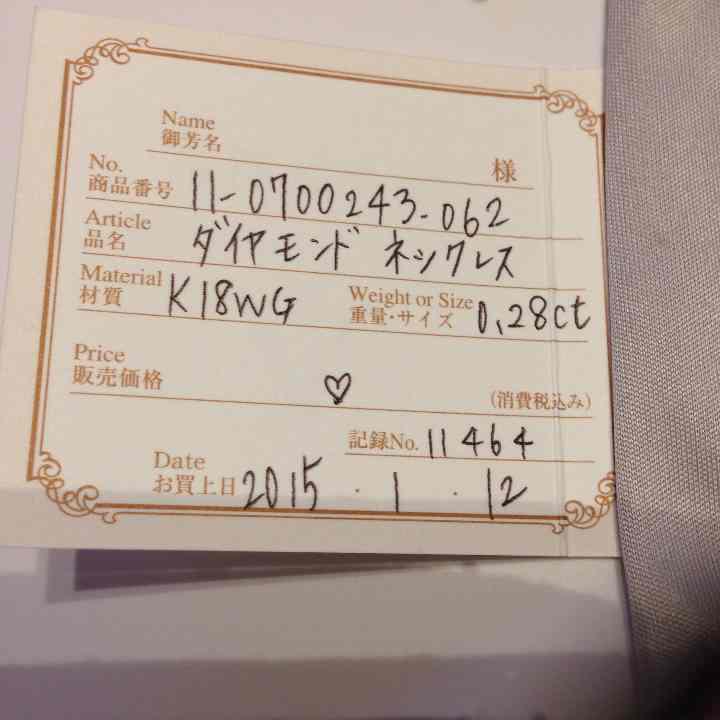 Name
御芳名 様
No.
商品番号 11-0700243-062
Article
品名 ダイヤモンド ネックレス
Material
材質 K18WG
Weight or Size
重量・サイズ 0.28ct
Price
販売価格 ♡ (消費税込み)
記録No. 11464
Date
お買上日 2015.1.12